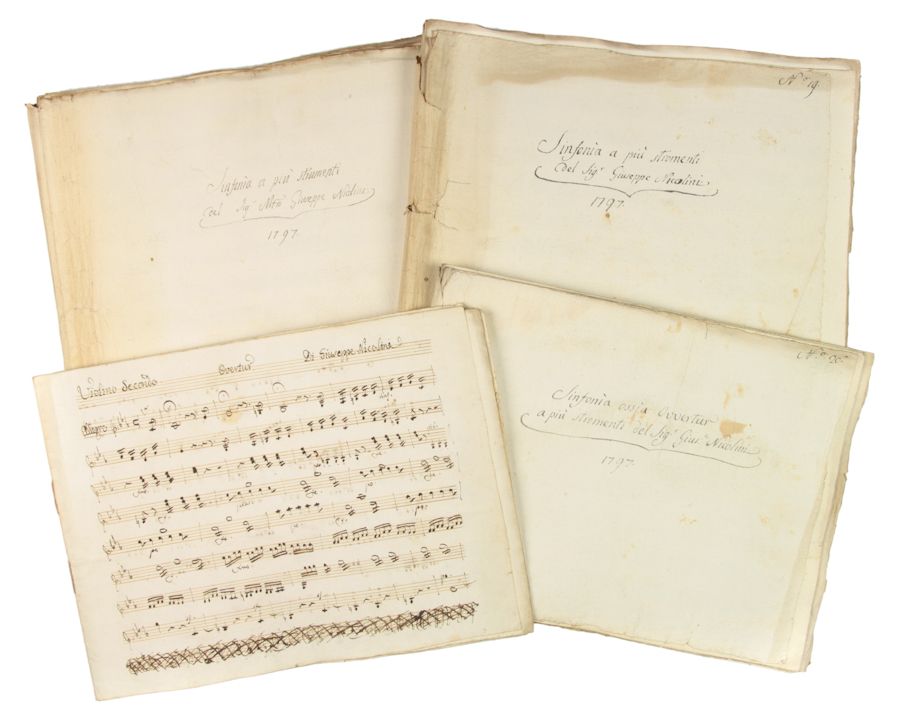 Sinfonia a più strumenti
del Sig.r Giuseppe Nicolini
1797.
N.o 19.
Sinfonia a più stromenti
del Sig.r Giuseppe Nicolini
1797.
Violino Secondo Overtur Di Giuseppe Nicolini
Allegro
Sinfonia ossia Overtur
a più stromenti del Sig.r Gius.e Nicolini
1797.